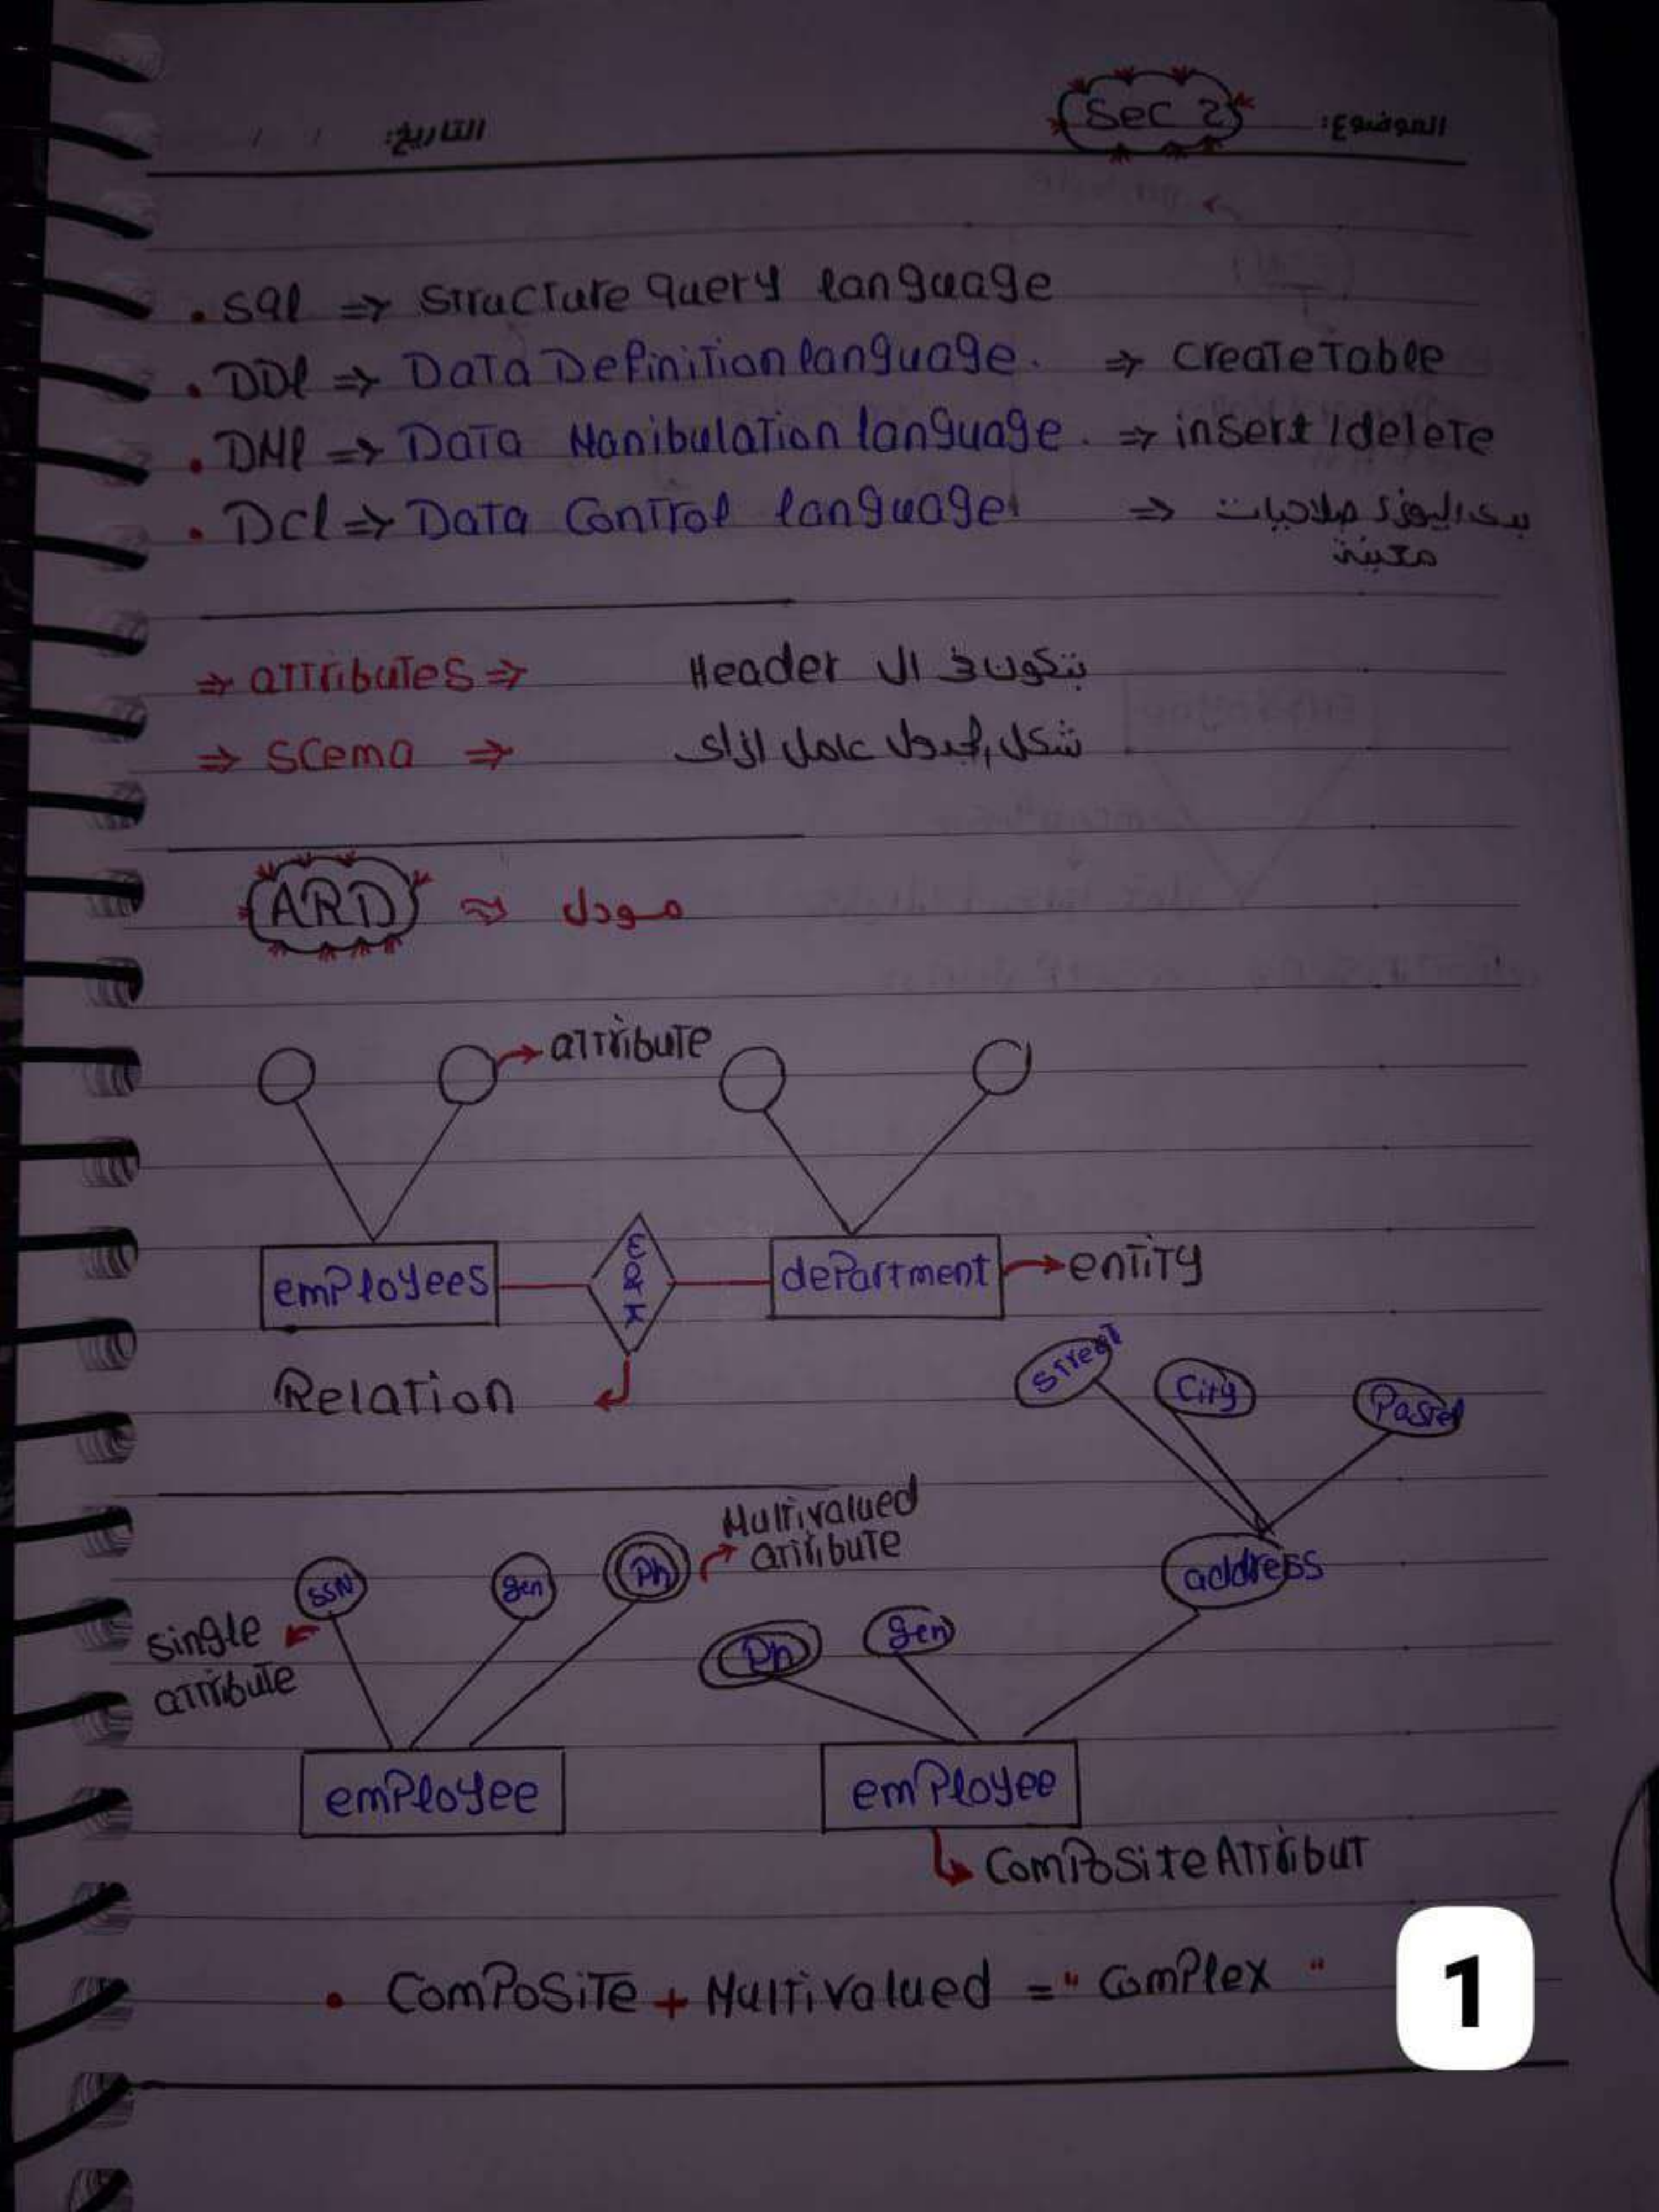 الموضوع: Sec 2 التاريخ: / /
. Sql ⇒ Structure Query language
. DDl ⇒ Data Definition language. ⇒ Create Table
. DMl ⇒ Data Manibulation language. ⇒ insert / delete
. DCl ⇒ Data Control language ⇒ بيدى اليوزر صلاحيات
معينة
⇒ attributes ⇒ بتكون في ال Header
⇒ Scema ⇒ شكل الجدول عامل ازاى
ARD ⇒ مودل
attribute
employees
department
entity
Relation
Street
City
Postel
Multivalued
attribute
SSN
gen
Ph
address
single
attribute
Ph
gen
employee
employee
Composite Attribut
• Composite + Multivalued = "Complex"
1